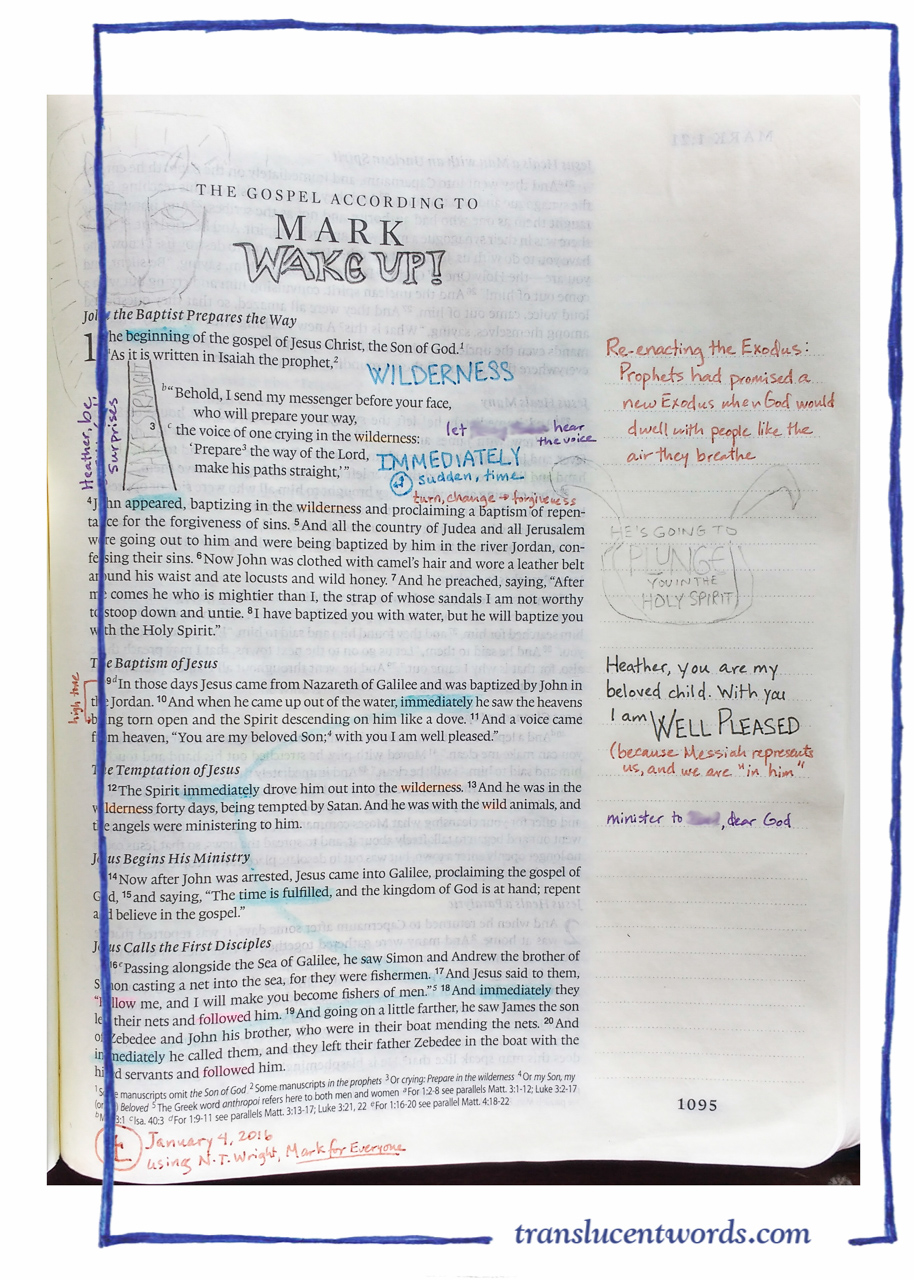 THE GOSPEL ACCORDING TO
MARK
WAKE UP!
John the Baptist Prepares the Way
1 The beginning of the gospel of Jesus Christ, the Son of God.¹
²As it is written in Isaiah the prophet,²
WILDERNESS
MAKE STRAIGHT
Heather, be
surprises
ᵇ“Behold, I send my messenger before your face,
who will prepare your way,
3 ᶜ the voice of one crying in the wilderness:
‘Prepare³ the way of the Lord,
make his paths straight,’”
let hear
the voice
IMMEDIATELY
sudden, time
turn, change → forgiveness
⁴John appeared, baptizing in the wilderness and proclaiming a baptism of repen-
tance for the forgiveness of sins. ⁵And all the country of Judea and all Jerusalem
were going out to him and were being baptized by him in the river Jordan, con-
fessing their sins. ⁶Now John was clothed with camel’s hair and wore a leather belt
around his waist and ate locusts and wild honey. ⁷And he preached, saying, “After
me comes he who is mightier than I, the strap of whose sandals I am not worthy
to stoop down and untie. ⁸I have baptized you with water, but he will baptize you
with the Holy Spirit.”
The Baptism of Jesus
high time
⁹ᵈIn those days Jesus came from Nazareth of Galilee and was baptized by John in
the Jordan. ¹⁰And when he came up out of the water, immediately he saw the heavens
being torn open and the Spirit descending on him like a dove. ¹¹And a voice came
from heaven, “You are my beloved Son;⁴ with you I am well pleased.”
The Temptation of Jesus
¹²The Spirit immediately drove him out into the wilderness. ¹³And he was in the
wilderness forty days, being tempted by Satan. And he was with the wild animals, and
the angels were ministering to him.
Jesus Begins His Ministry
¹⁴Now after John was arrested, Jesus came into Galilee, proclaiming the gospel of
God, ¹⁵and saying, “The time is fulfilled, and the kingdom of God is at hand; repent
and believe in the gospel.”
Jesus Calls the First Disciples
¹⁶ᵉPassing alongside the Sea of Galilee, he saw Simon and Andrew the brother of
Simon casting a net into the sea, for they were fishermen. ¹⁷And Jesus said to them,
“Follow me, and I will make you become fishers of men.”⁵ ¹⁸And immediately they
left their nets and followed him. ¹⁹And going on a little farther, he saw James the son
of Zebedee and John his brother, who were in their boat mending the nets. ²⁰And
immediately he called them, and they left their father Zebedee in the boat with the
hired servants and followed him.
¹Some manuscripts omit the Son of God ²Some manuscripts in the prophets ³Or crying: Prepare in the wilderness ⁴Or my Son, my
(or the) Beloved ⁵The Greek word anthropoi refers here to both men and women ᵃFor 1:2-8 see parallels Matt. 3:1-12; Luke 3:2-17
ᵇMal. 3:1 ᶜIsa. 40:3 ᵈFor 1:9-11 see parallels Matt. 3:13-17; Luke 3:21, 22 ᵉFor 1:16-20 see parallel Matt. 4:18-22
January 4, 2016
using N.T. Wright, Mark for Everyone
Re-enacting the Exodus:
Prophets had promised a
new Exodus when God would
dwell with people like the
air they breathe
HE'S GOING TO
PLUNGE
YOU IN THE
HOLY SPIRIT
Heather, you are my
beloved child. With you
I am WELL PLEASED
(because Messiah represents
us, and we are "in him"
minister to , dear God
1095
MARK 1:21
translucentwords.com